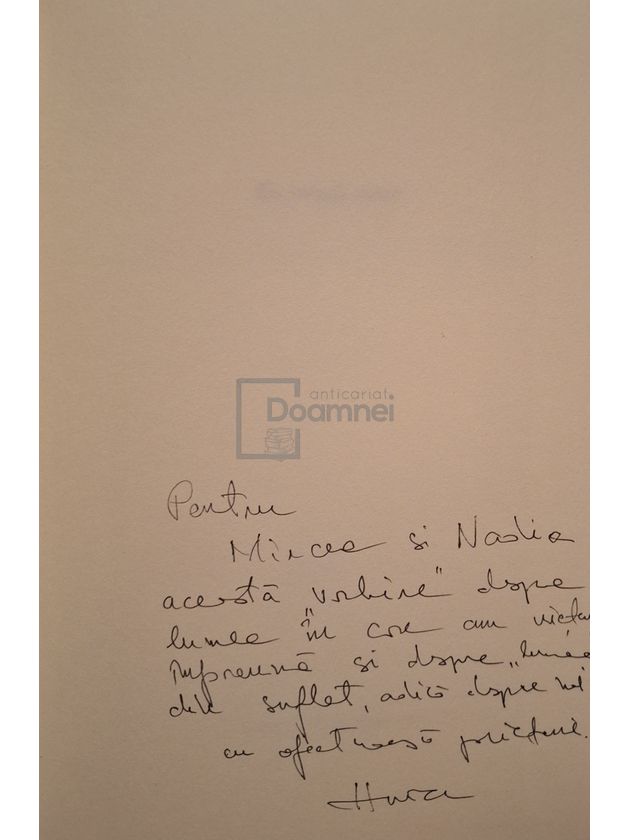 anticariat
Doamnei
Pentru
Mircea si Nadia
această „vorbire" dspre
lumea în care am
împreună si dspre „lumea
din suflet, adică dspre noi
cu afectuoasă prietenie.